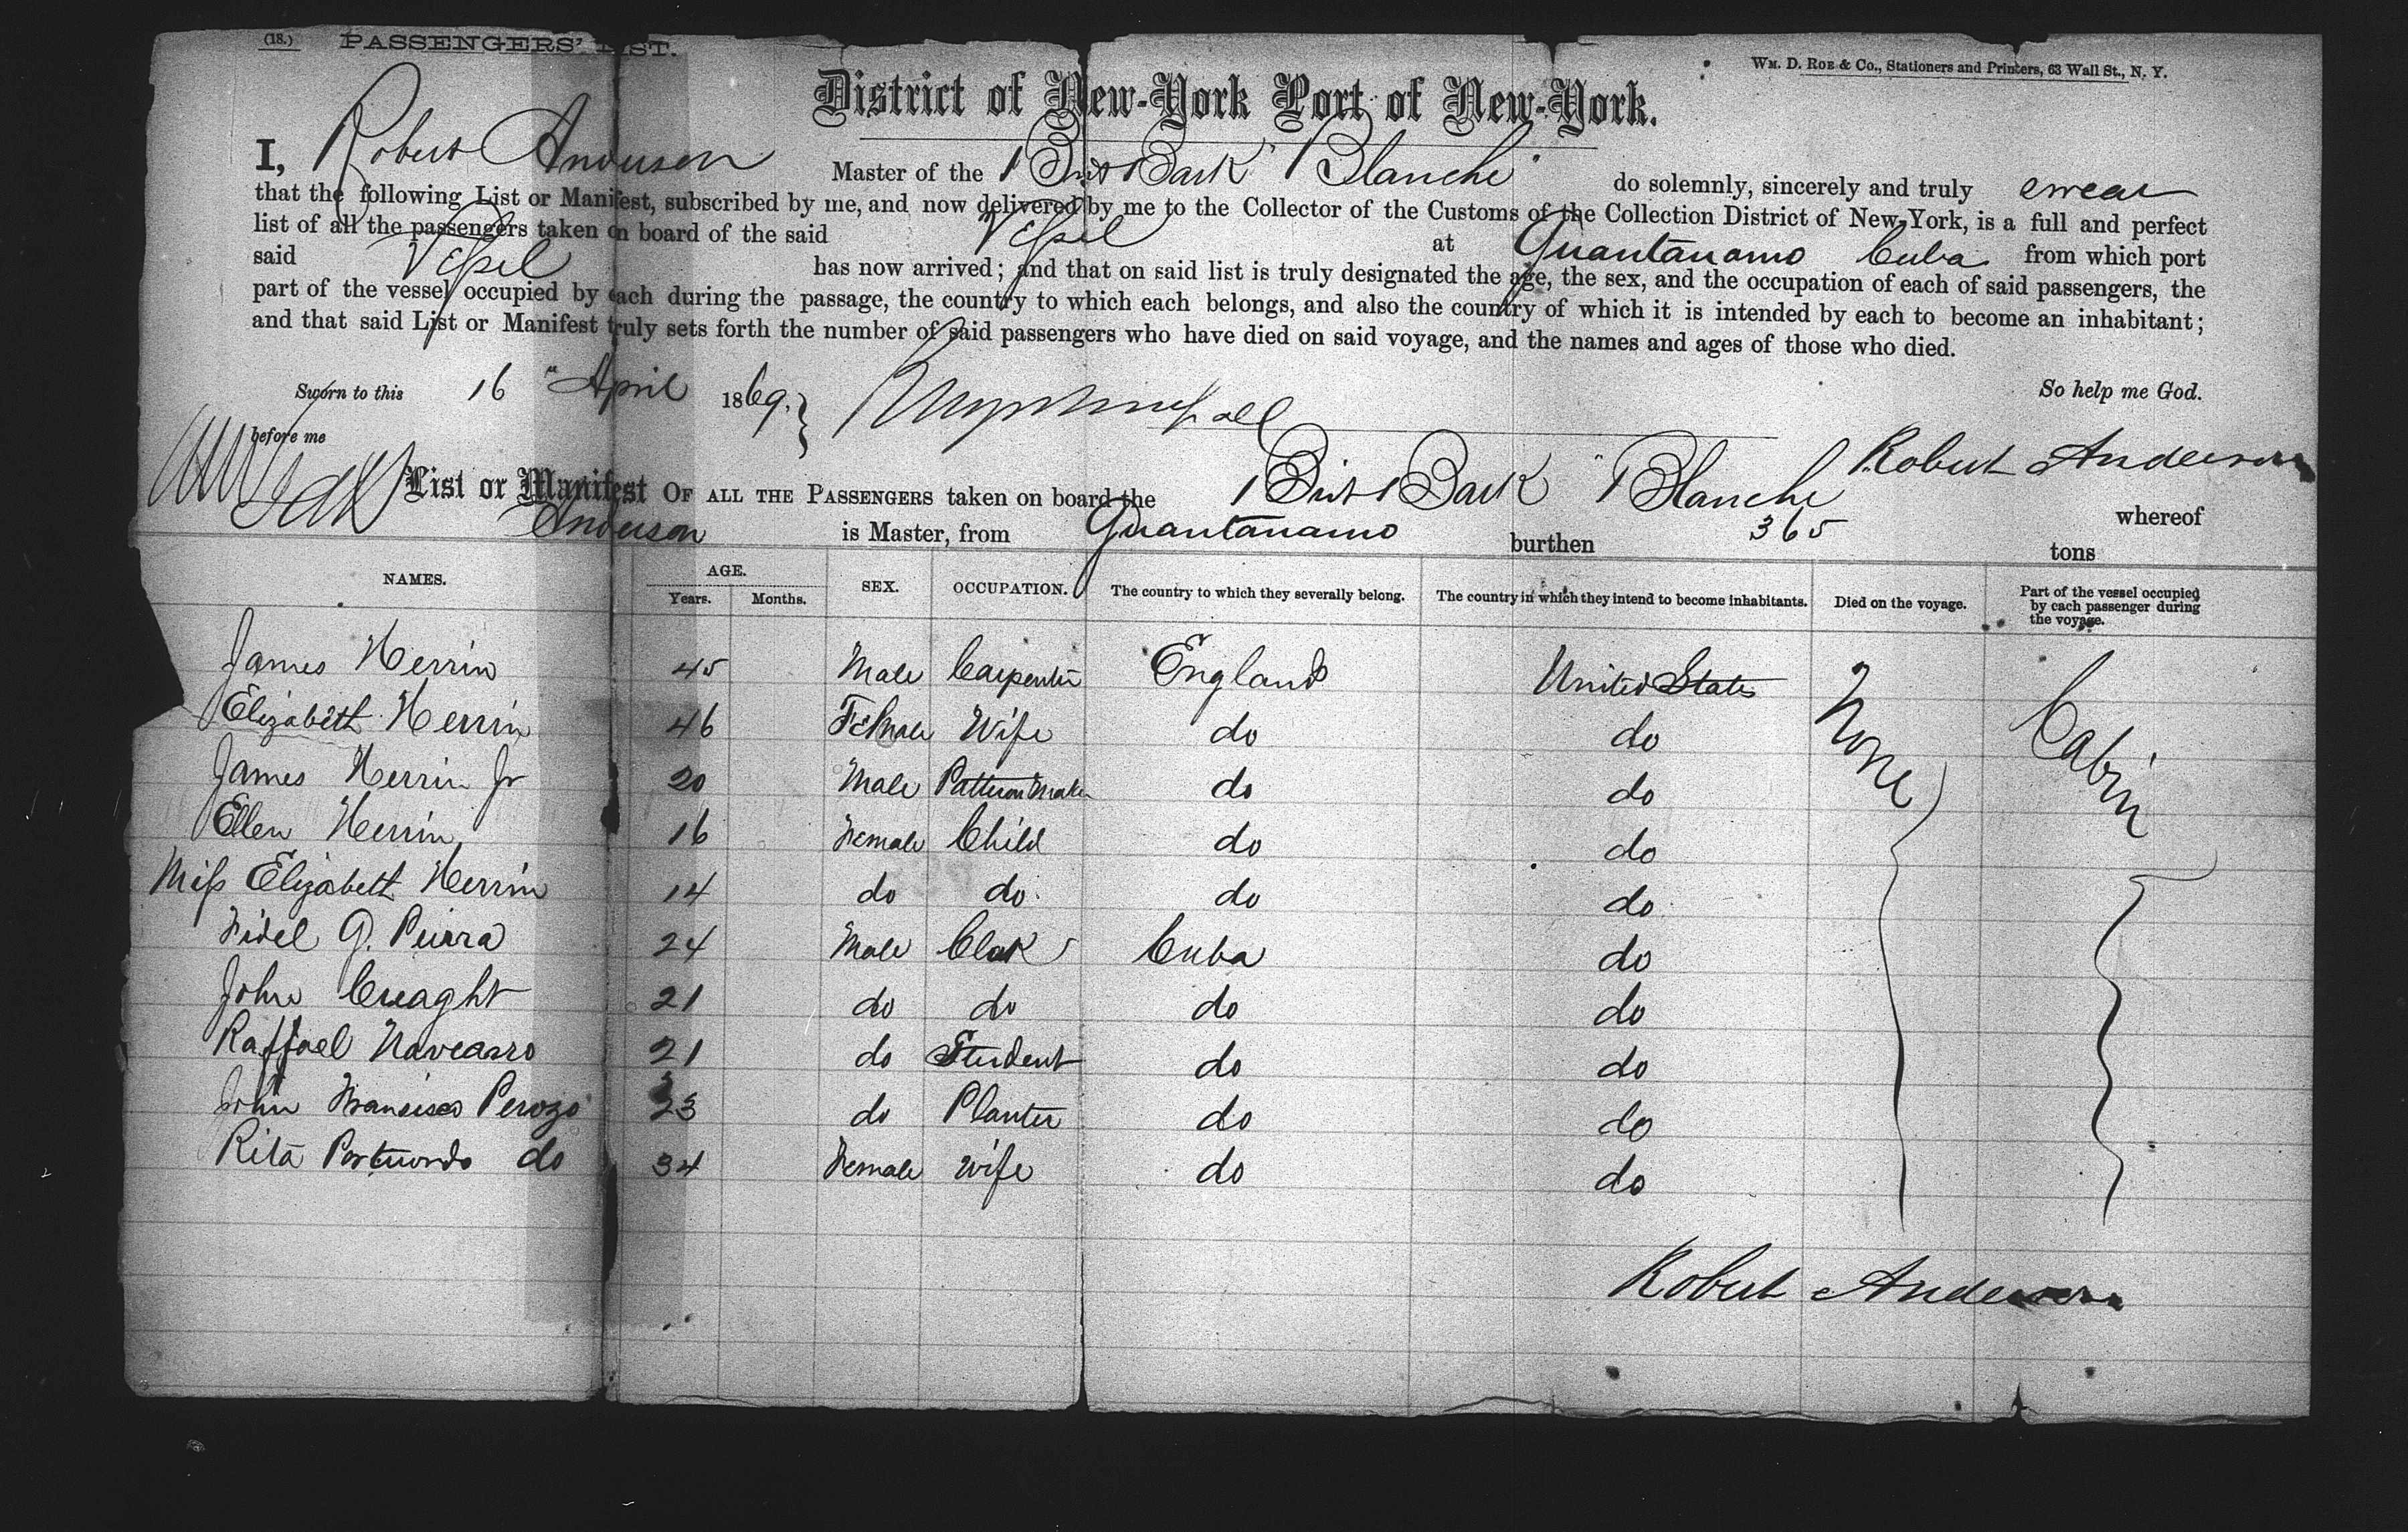 (18.) PASSENGERS' LIST.
WM. D. ROE & Co., Stationers and Printers, 63 Wall St., N. Y.
District of New-York Port of New-York.
I, Robert Anderson Master of the Brit Bark "Blanche" do solemnly, sincerely and truly swear
that the following List or Manifest, subscribed by me, and now delivered by me to the Collector of the Customs of the Collection District of New-York, is a full and perfect
list of all the passengers taken on board of the said Vessel at Guantanamo Cuba from which port
said Vessel has now arrived; and that on said list is truly designated the age, the sex, and the occupation of each of said passengers, the
part of the vessel occupied by each during the passage, the country to which each belongs, and also the country of which it is intended by each to become an inhabitant;
and that said List or Manifest truly sets forth the number of said passengers who have died on said voyage, and the names and ages of those who died.
Sworn to this 16 " April 1869. So help me God.
before me
Robert Anderson
List or Manifest OF ALL THE PASSENGERS taken on board the Brit Bark "Blanche whereof
Anderson is Master, from Guantanamo burthen 365 tons
NAMES. AGE. Years. Months. SEX. OCCUPATION. The country to which they severally belong. The country in which they intend to become inhabitants. Died on the voyage. Part of the vessel occupied by each passenger during the voyage.
James Herrin 45 Male Carpenter England United States None Cabin
Elizabeth Herrin 46 Female Wife do do
James Herrin Jr 20 Male Pattern Maker do do
Ellen Herrin 16 Female Child do do
Miss Elizabeth Herrin 14 do do do do
Fidel G. Pierra 24 Male Clerk Cuba do
John Creaght 21 do do do do
Raffael Navearro 21 do Student do do
John Francisco Perozo 23 do Planter do do
Rita Portuondo do 34 Female Wife do do
Robert Anderson